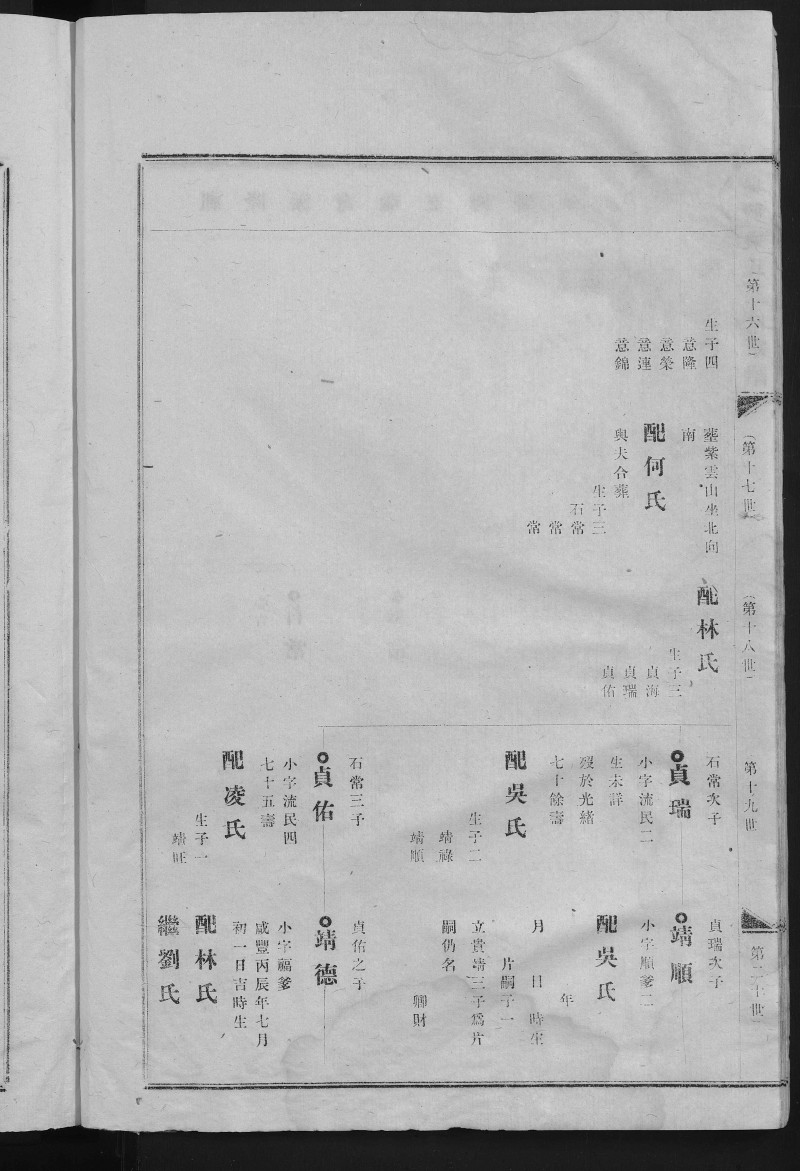 第十六世
生子四
意隆
意榮
意連
意錦
第十七世
塟紫雲山坐北向
南
配何氏
與夫合葬
生子三
石常
常
常
第十八世
配林氏
生子三
貞海
貞瑞
貞佑
第十九世
石常次子
貞瑞
小字流民二
生未詳
歿於光緒
七十餘壽
配吳氏
生子二
靖祿
靖順
石常三子
貞佑
小字流民四
七十五壽
配凌氏
生子一
靖旺
第二十世
貞瑞次子
靖順
小字順爹二
配吳氏
年
月 日 時生
片嗣子一
立貴靖三子為片
嗣仍名
卿財
貞佑之子
靖德
小字福爹
咸豐丙辰年七月
初一日吉時生
配林氏
繼劉氏